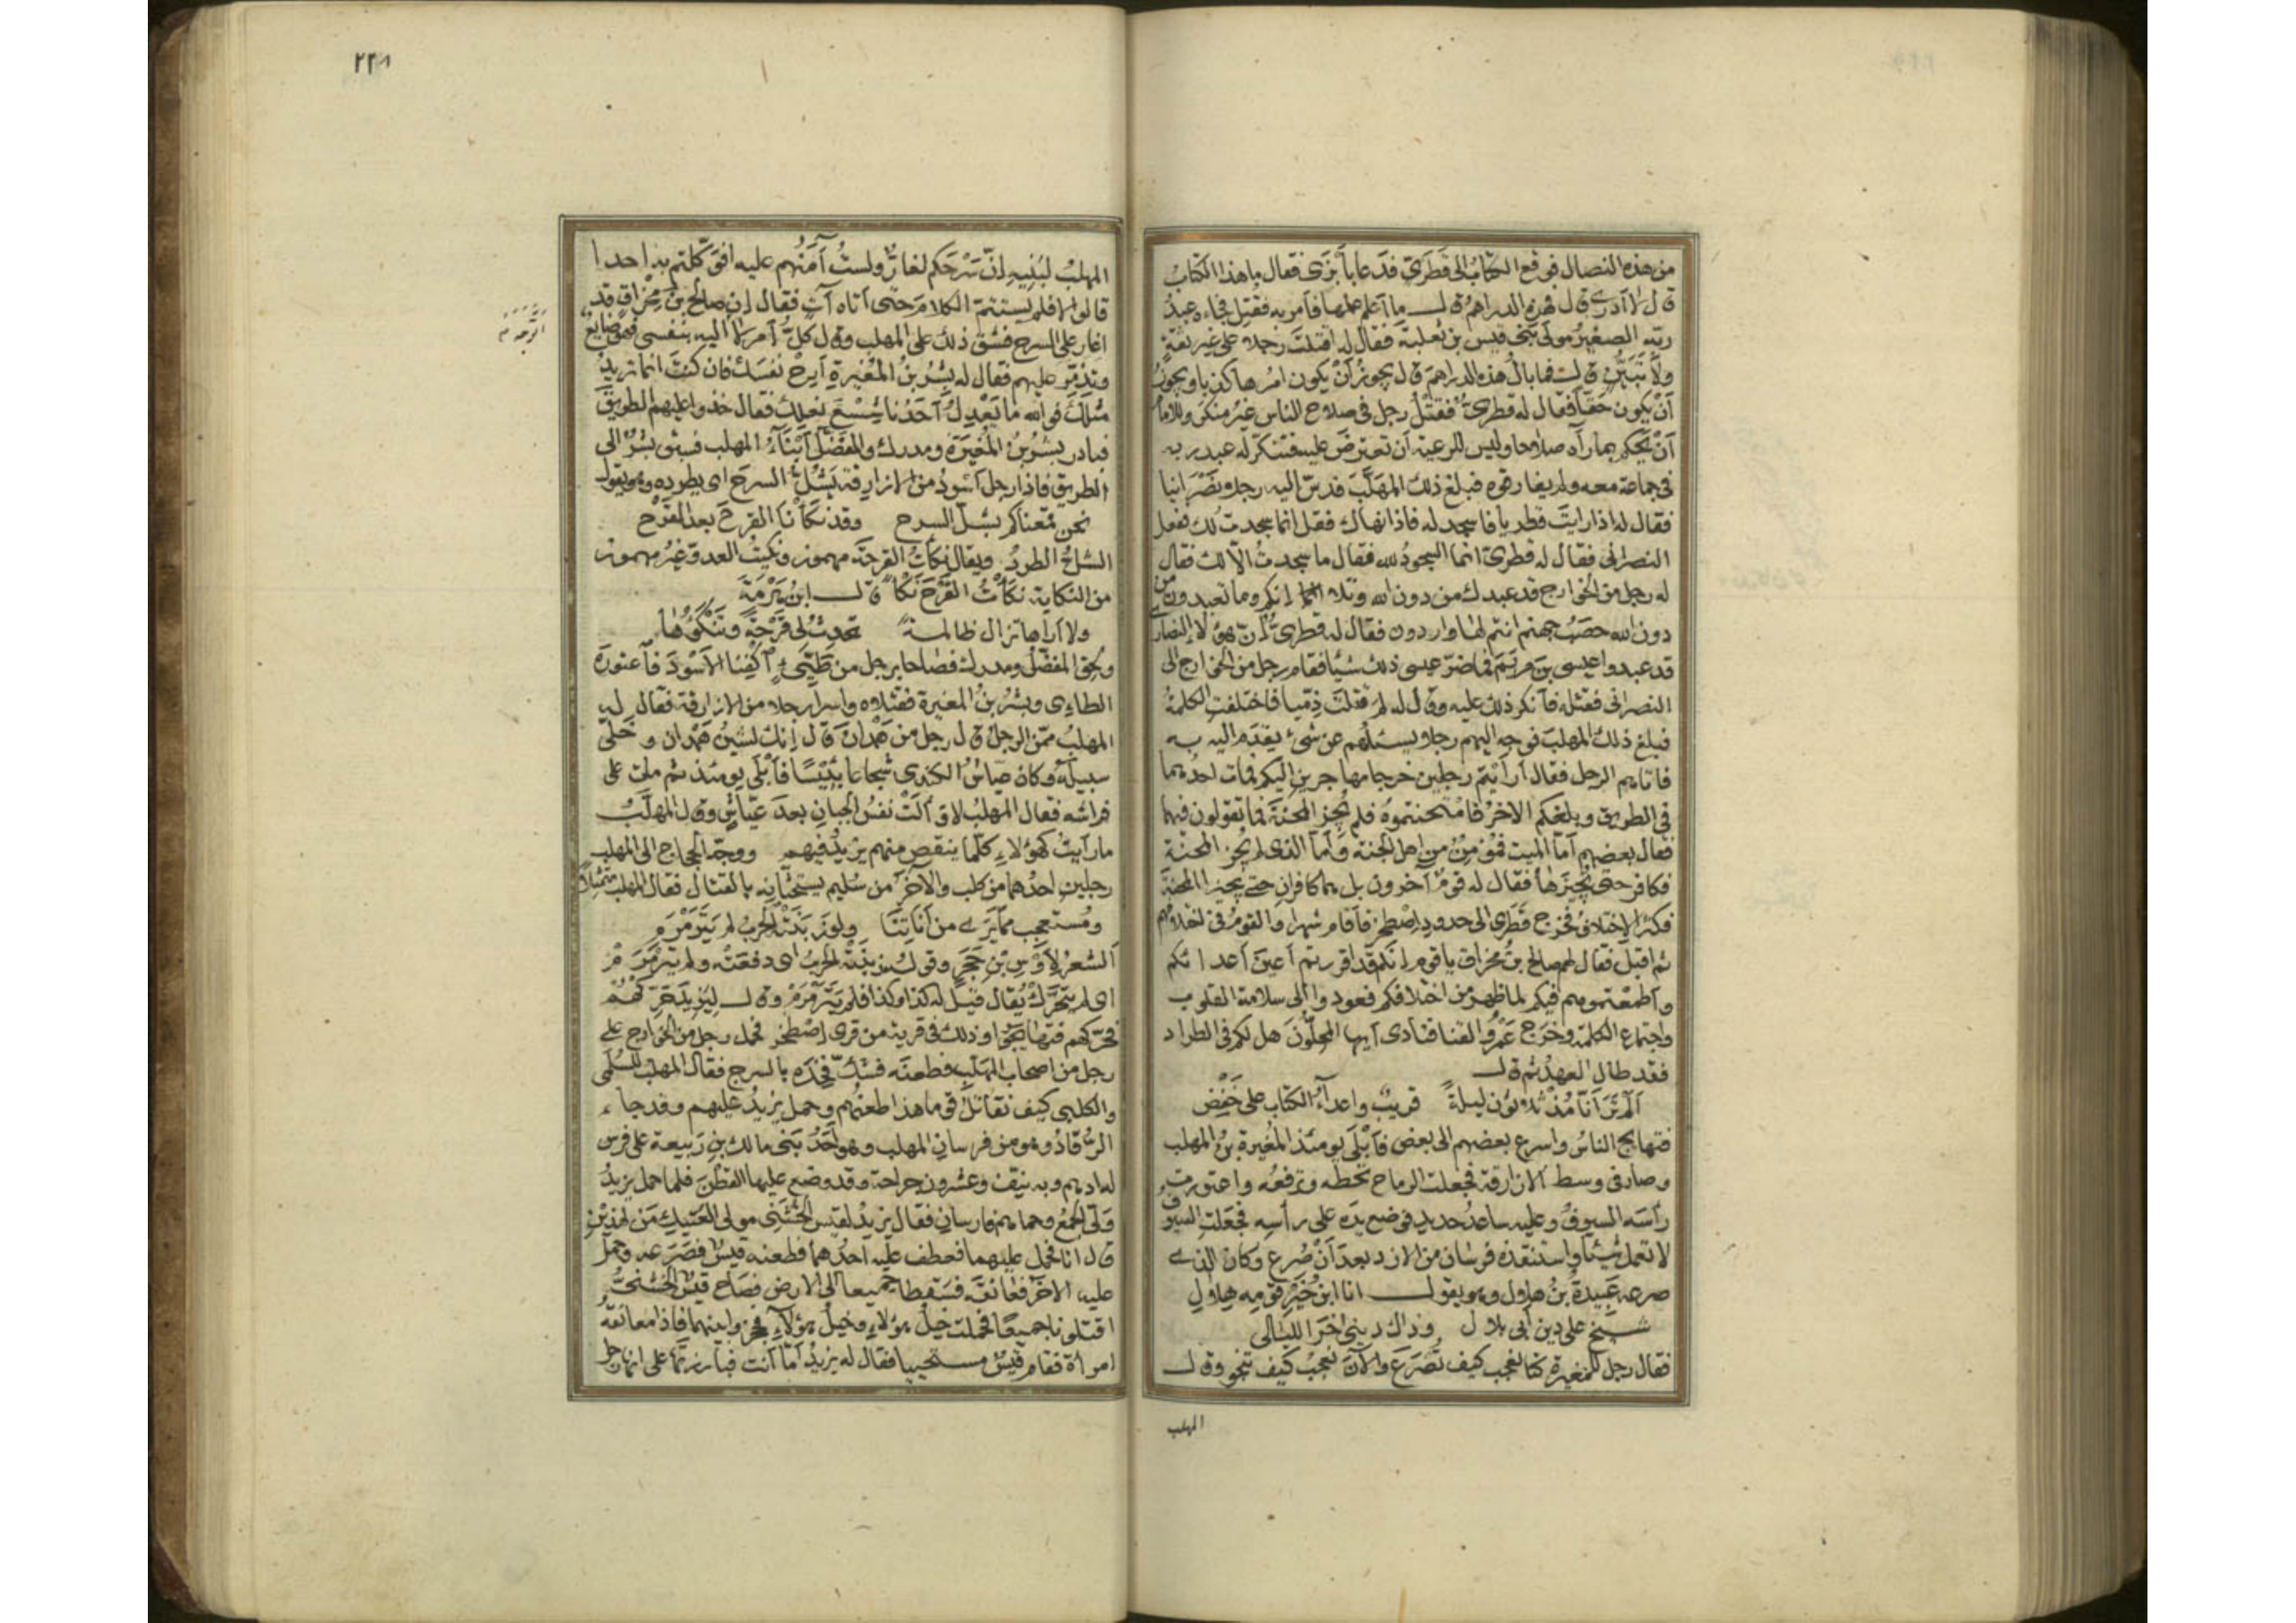 من هذه النصال فوقع الكتابُ الى قَطَرِيّ فدَعا بأَبزَى فقال ما هذا الكتابُ
قال لا أدرى قال فهذه الدراهمُ قال ما أعلم علمها فأمر به فقُتِل فجاءه عبدُ
ربّه الصغيرُ مولَى بنى قيس بن ثعلبة فقال له اقتلتَ رجلا على غير ثقةٍ
ولا تَبَيُّن قال فما بالُ هذه الدراهم قال يجوزُ أنْ يكون امرُها كذبا ويجوزُ
أنْ يكون حقّاً فقال له قطرىّ فقَتْلُ رجل فى صلاح الناس غيرُ منكَر وللامام
أنْ يحكم بما رآه صلاحا وليس للرعية أن تعترضَ عليه فتنكّر له عبد ربه
فى جماعة معه ولم يفارقوه فبلغ ذلك المهلَّبَ فدسّ اليه رجلا نصرانيا
فقال له اذا رايتَ قطريا فاسجد له فاذا نهاك فقل انما سجدت لك ففعل
النصرانى فقال له قطرىّ انما السجودُ لله فقال ما سجدتُ الّا لك فقال
له رجل من الخوارج قد عبدك من دون الله وتلا انكم وما تعبدون من
دون الله حصَبُ جهنم انتم لها واردون فقال له قطرىُّ إنّ هؤلاء النصارى
قد عبدوا عيسى بنَ مريَمَ فما ضرّ عيسى ذلك شيئا فقام رجل من الخوارج الى
النصرانى فقتله فأنكر ذلك عليه وقال له لم قتلتَ ذِمّيا فاختلفت الكلمةُ
فبلغ ذلك المهلبَ فوجه اليهم رجلا يسئلهم عن شىء يقدّم اليه به
فاتاهم الرجل فقال أرأيتم رجلين خرجا مهاجرين اليكم فمات احدُهما
فى الطريق وبلغكم الاخرُ فامتحنتموه فلم يُجز المحنةَ فما تقولون فيهما
فقال بعضهم أمّا الميت فمؤمنٌ من اهل الجنة وأمّا الذى لم يُجز المحنة
فكافر حتى يُجيزَها فقال له قومٌ آخرون بل هما كافران حتى يجيزا المحنة
فكثر الاختلاف فخرج قَطَرى الى حدود إصْطخرَ فأقام شهرا والقومُ فى اختلافهم
ثم اقبل فقال لهم صالح بنُ مخراق يا قوم إنكم قد اقررتم أعينَ أعدائكم
وأطمعتموهم فيكم لما ظهر من اختلافكم فعودوا إلى سلامة القلوب
واجتماع الكلمة وخرج عَمرُو القنا فنادى أيها المحلّون هل لكم فى الطراد
فقد طال العهدُ ثم قال
ألم تَرَ أنّا مُذْ ثلاثون ليلةً قريبٌ واعداءُ الكتاب على خَفْضِ
فتهايج الناسُ واسرع بعضهم الى بعض فأبلَى يومئذ المُغيرةُ بنُ المهلب
وصار فى وسط الازارقة فجعلت الرماح تحطّه وترفعُه واعتورت
رأسَه السيوفُ وعليه ساعدُ حديد فوضع يدَه على رأسه فجعلت السيوفُ
لا تعمل شيئا واستنقذه فرسان من الازد بعد أنْ صُرع وكان الذى
صرعه عَبيدةُ بنُ هلال وهو يقول انا ابنُ خَيْرِ قومِه هِلالِ
شيخٍ على دين أبى بلالِ وذاك دينى اخرَ الليالى
فقال رجل للمغيرة كنّا نعجب كيف تُصْرَعُ والآنَ نعجبُ كيف تنجو وقال
المهلب
٢٢٨
المهلبُ لبَنِيه إنّ سَرْحَكم لغارٌّ ولستُ آمَنُهم عليه افوَكّلتم به احدا
قالوا لا فلم يستتمّ الكلامَ حتى أتاه آتٍ فقال إن صالح بنَ مِخراقٍ قد
اغار على السرح فشقّ ذلك على المهلب وقال كلُّ أمر لا أليه بنفسى فهو ضايعٌ
وتذمّر عليهم فقال له بِشْرُ بنُ المُغيرةِ أرِحْ نفسَك فان كنتَ انما تريدُ
مثلَك فوالله ما يَعْدِلُ أحَدُنا شِسْعَ نعلِك فقال خذوا عليهم الطريقَ
فبادر بِشْرُ بنُ المُغيرةِ ومدرك والمفضّل أبْنَاءُ المهلب فسبق بشْرٌ الى
الطريق فاذا رجل أسْودُ من الازارقة يَشُلُّ السرحَ اى يطرده وهو يقول
نحن قمَعناكم بشلّ السرح وقد نكَأْنا القرحَ بعد القَرْح
الشلُّ الطردُ ويقال نكأتُ القرحةَ مهموز ونكيتُ العدوّ غيرُ مهموز
من النكاية نكَأْتُ القَرْحَ نَكْأً قال ابنُ هَرْمَةَ
ولا أراها تزال ظالمةً تُحدِثُ لى قَرْحةً وتَنْكَؤُها
ولحق المفضّلُ ومدرك فصاحا برجل من طيّىءٍ اكْفِنا الأسْودَ فاعتورَه
الطاءى وبشْرُ بنُ المغيرة فقتلاه واسرا رجلا من الازارقة فقال له
المهلبُ ممّن الرجلُ قال رجل من هَمْدانَ قال إنك لشَينُ همْدان وخلّى
سبيلَه وكان عيّاشُ الكندى شجاعا بئيسًا فأبلَى يومئذ ثم مات على
فراشه فقال المهلبُ لا وألَتْ نفسُ الجبانِ بعدَ عيّاشٍ وقال المهلّبُ
ما رأيتُ كهؤلاءِ كلّما ينقص منهم يزيدُ فيهم ووجّه الحجاج الى المهلب
رجلين احدُهما من كلب والاخر من سُليم يستحثّانِه بالقتال فقال المهلب متمثلا
ومُستعجبٍ ممّا يَرَى من أناتِنا ولو زبَنَتْه الحربُ لم يتَرَمْرَم
ألشعرُ لأوْسِ بْنِ حَجَرٍ وقوله زبنتْه الحربُ اى دفعَتْه ولم يترمْرَمْ
اى لم يتحرّكْ يُقال قيلَ له كذا وكذا فلم يَتَرمْرَمْ وقال لِيَزيدَ حَرّكْهُم
فحرّكهم فتهايَجُوا وذلك فى قرية من قرى اصْطخر فحمل رجل من الخوارج على
رجل من اصحاب المهلب فطعنَه فشكّ فخِذَه بالسرج فقال المهلب للسُلَمى
والكلبى كيف نقاتلُ قوما هذا طعنُهم وحمل يزيدُ عليهم وقد جاء
الرُقادُ وهو من فرسانِ المهلب وهو أحَدُ بَنى مالك بنِ رَبيعة على فرس
له ادهم وبه نيّف وعشرون جراحة وقد وضع عليها القطن فلما حمل يزيدُ
وَلّى الجمعُ وحماهم فارسانِ فقال يزيدُ لقيْس الخُشَنِى مولى العَتيك مَن لهذيْن
قال انا فحمل عليهما فعطف عليه احدُهما فطعنه قيسٌ فصَرَعه وحمل
عليه الآخرُ فعانقَه فسَقطا جميعا الى الارض فصاح قيسٌ الخُشَنىُّ
اقتلونا جميعًا فحملت خيلُ هؤلاء وخيلُ هؤلاء فحجزوا بينهما فاذا مُعانقُه
امرأة فقام قيسٌ مستحييا فقال له يزيدُ أمّا أنت فبارزتَها على انها رجل